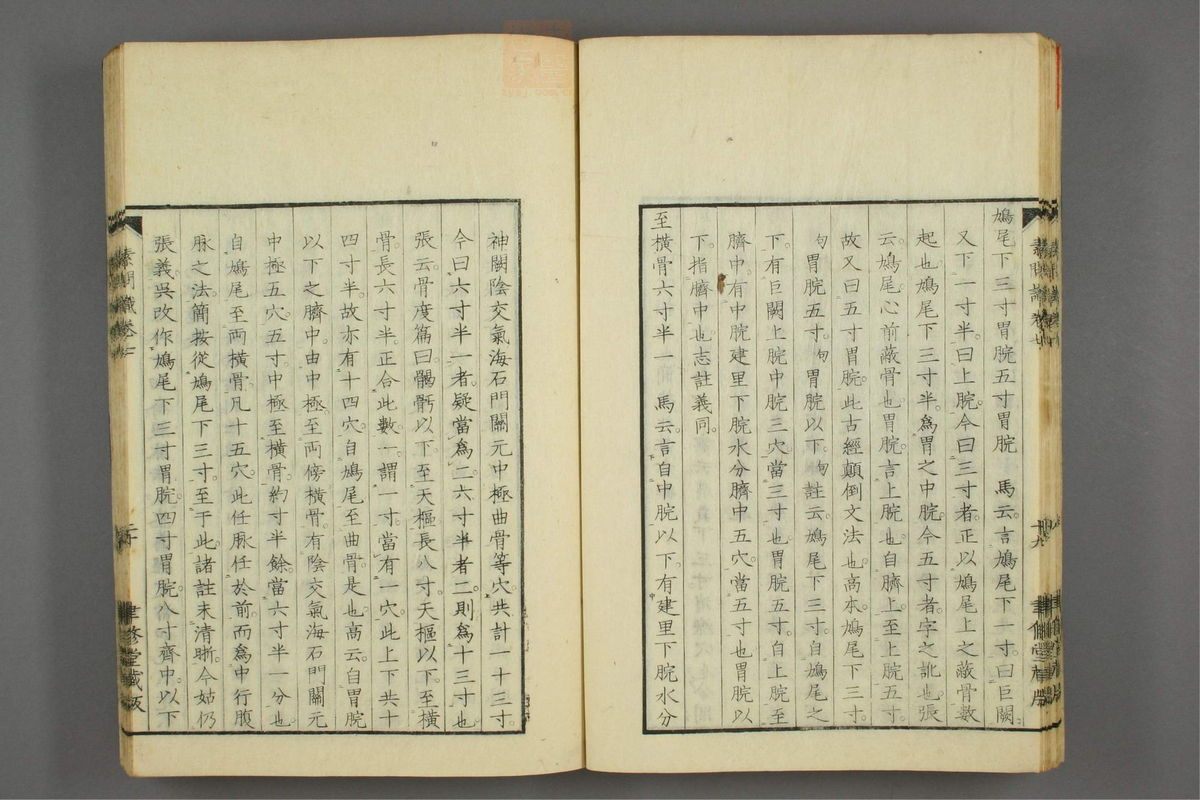 鳩尾下三寸胃脘五寸胃脘　馬云言鳩尾下一寸曰巨闕
又下一寸半曰上脘今曰三寸者正以鳩尾上之蔽骨數
起也鳩尾下三寸半爲胃之中脘今五寸者字之訛也張
云鳩尾心前蔽骨也胃脘言上脘也自臍上至上脘五寸
故又曰五寸胃脘此古經顛倒文法也高本鳩尾下三寸
句胃脘五寸句胃脘以下句註云鳩尾下三寸自鳩尾之
下有巨闕上脘中脘三穴當三寸也胃脘五寸自上脘至
臍中有中脘建里下脘水分臍中五穴當五寸也胃脘以
下指臍中也志註義同
至橫骨六寸半一　馬云言自中脘以下有建里下脘水分
神闕陰交氣海石門關元中極曲骨等穴共計一十三寸
今曰六寸半一者疑當爲二六寸半者二則爲十三寸也
張云骨度篇曰𩩲骬以下至天樞長八寸天樞以下至橫
骨長六寸半正合此數一謂一寸當有一穴此上下共十
四寸半故亦有十四穴自鳩尾至曲骨是也高云自胃脘
以下之臍中由中極至兩傍橫骨有陰交氣海石門關元
中極五穴五寸中極至橫骨約寸半餘當六寸半一分也
自鳩尾至兩橫骨凡十五穴此任脈任於前而爲中行腹
脈之法簡按從鳩尾下三寸至于此諸註未清晰今姑仍
張義吳改作鳩尾下三寸胃脘四寸胃脘八寸齊中以下
素問識卷七
二十
聿修堂藏版